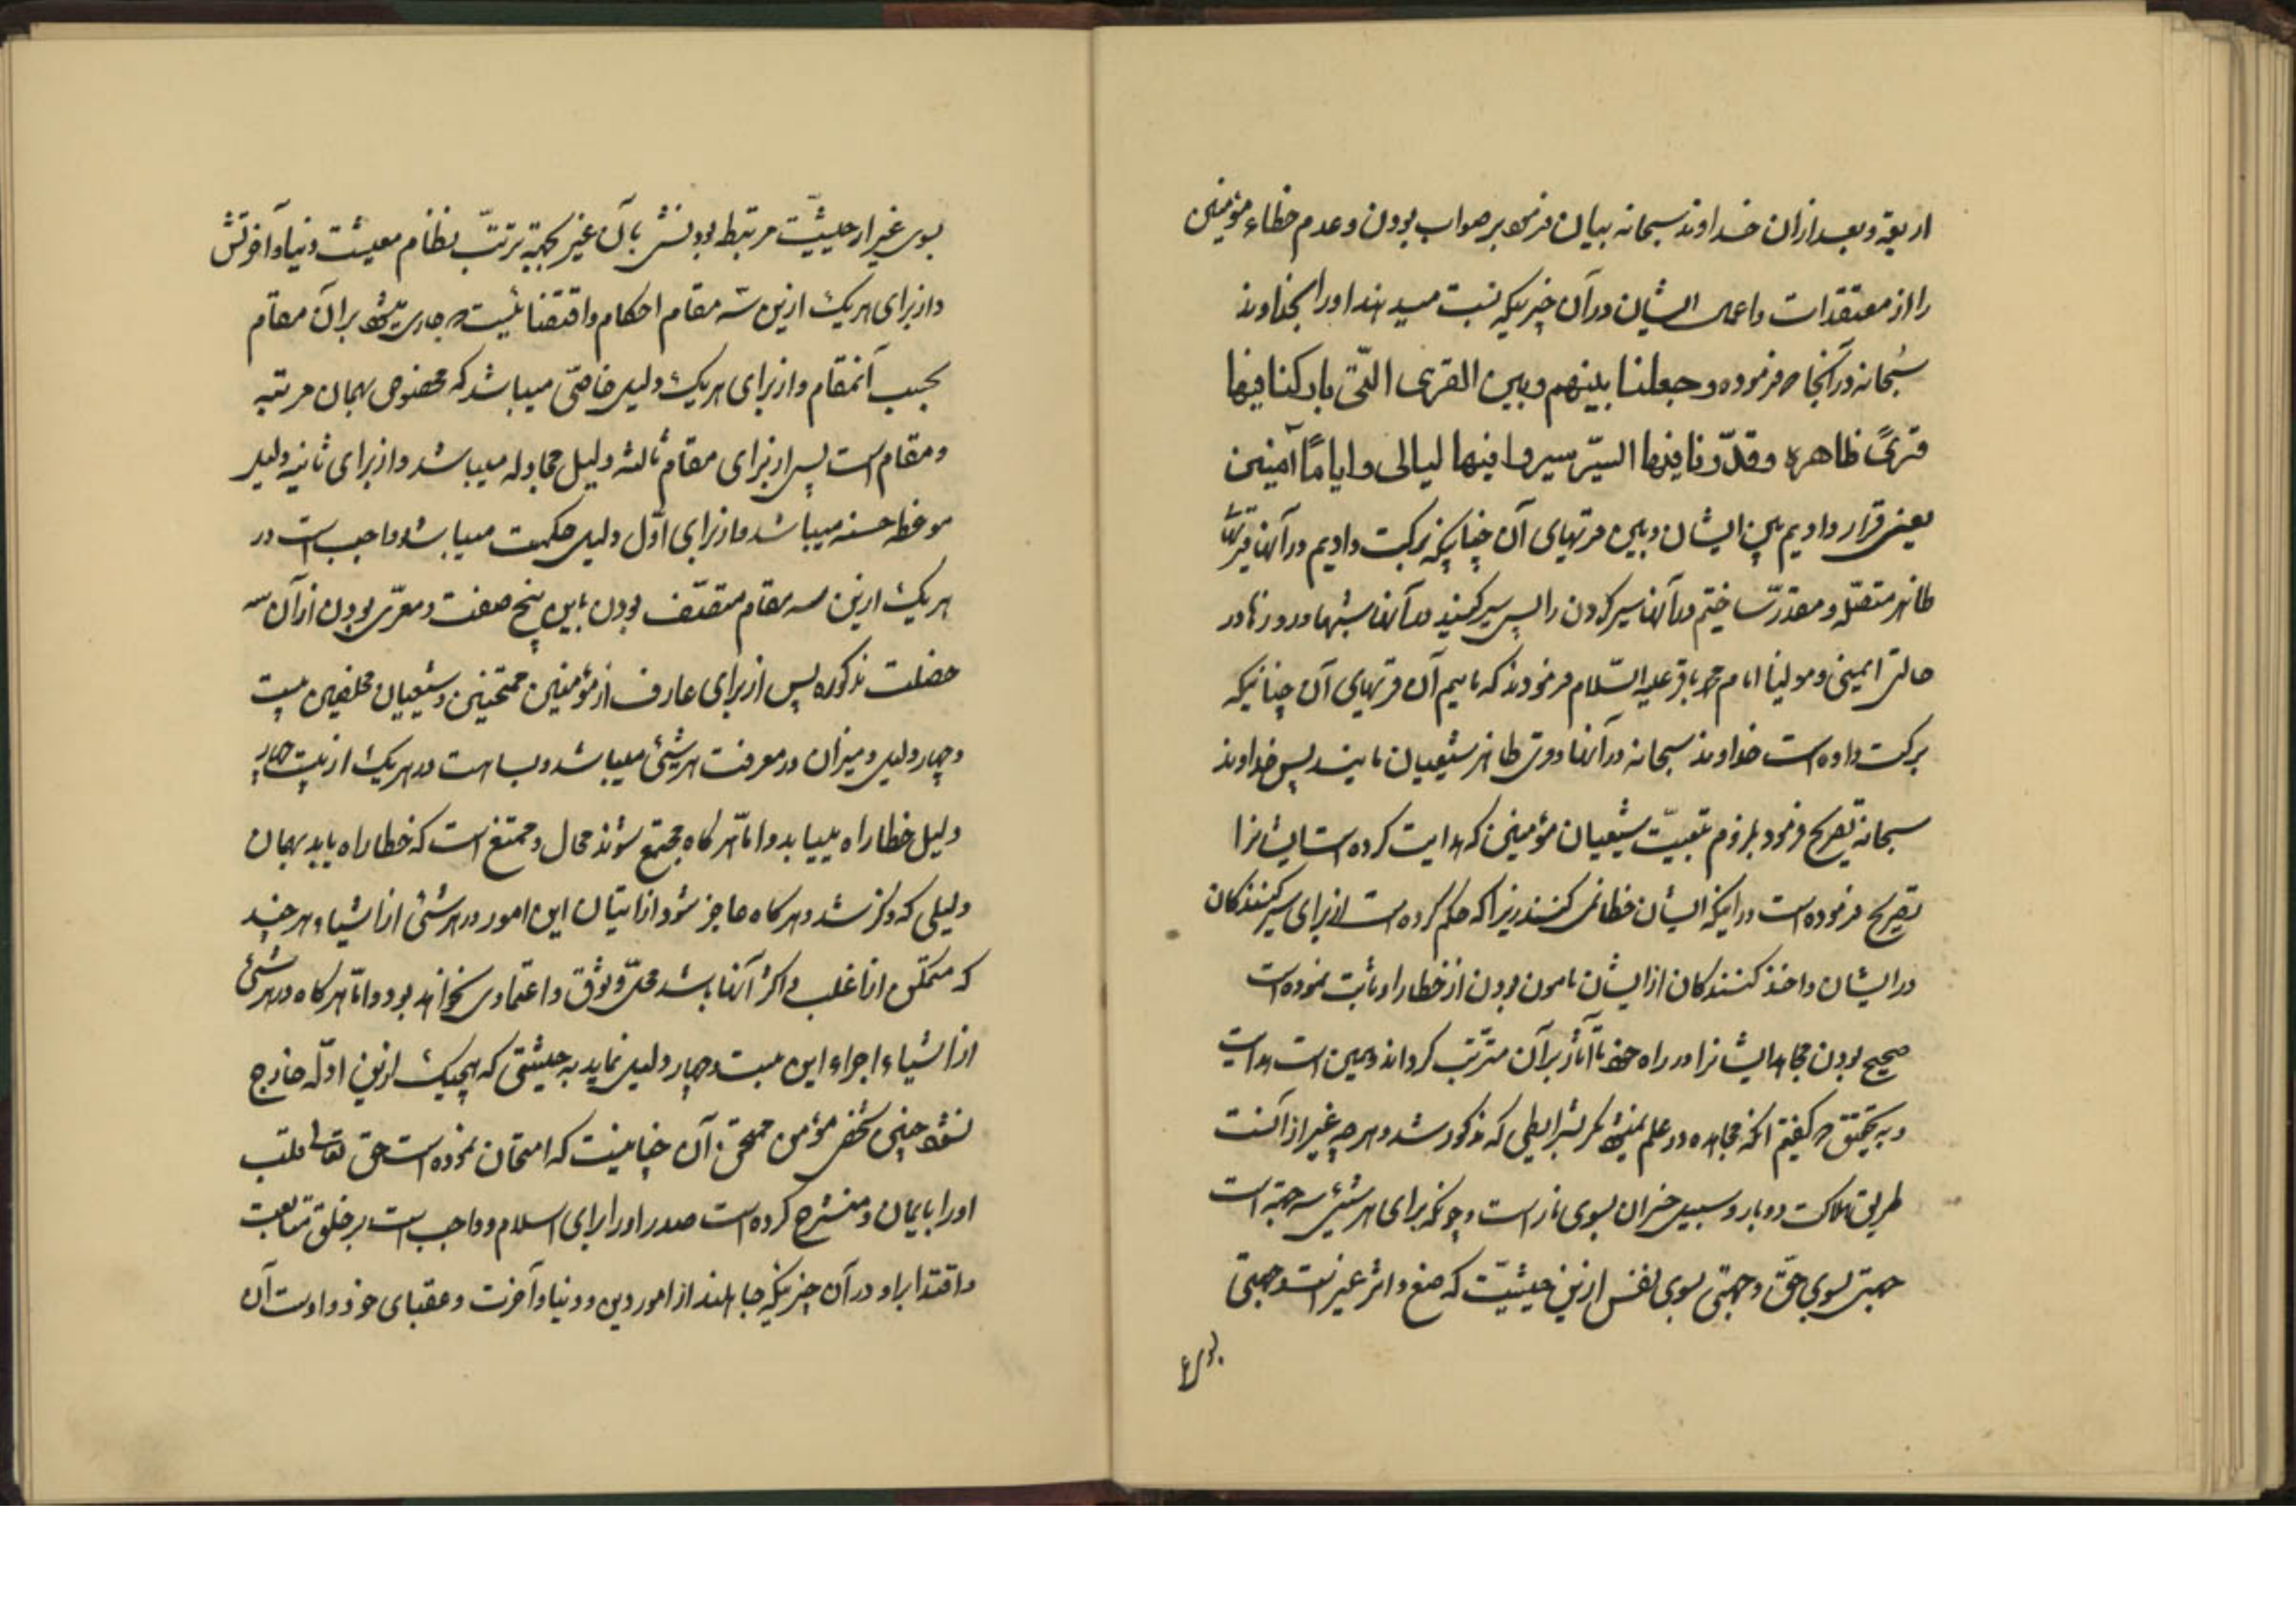 اربعة و بعد ازان خداوند سبحانه بیان فرموده بر صواب بودن و عدم خطاء مؤمنین
را از معتقدات و اعمال ایشان در آن چیزیکه نسبت میدهند او را بخداوند
سُبحانه در آنجا که فرموده وجعلنا بینهم وبین القری الّتی بارکنا فیها
قریً ظاهره وقدّرنا فیها السیّر سیروا فیها لیالی وایاماً آمنین
یعنی قرار دادیم بین ایشان و بین قریهای آن چنانیکه برکت دادیم در آنها
ظاهر متصّله و مقدّر ساختیم در آنها سیر کردن را پس سیر کنید در آنها شبها و روزها در
حالتی ایمنی و مولینا امام محمد باقر علیه السّلام فرمودند که مائیم آن قریهای آن چنانیکه
برکت داده است خداوند سبحانه در آنها و قری ظاهر شیعیان مایند پس خداوند
سبحانه تصریح فرمود بلزوم تبعیّت شیعیان مؤمنین که هدایت کرده است ایشانرا
تصریح فرموده است در اینکه ایشان خطا نمی کنند زیرا که حکم کرده است از برای سیر کنندکان
در ایشان و اخذ کنندکان از ایشان مامون بودن از خطا را و ثابت نموده است
صحیح بودن مجاهد ایشانرا در راه خود تا آثار بر آن مترتب کرداند و همین است هدایت
و به تحقیق که کفتیم انکه مجاهده در علم نمیشود مکر بشرایطی که مذکور شد و هر چه غیر از آنست
طریق هلاکت و دوبار و سبیل خسران بسوی نار است و چونکه برای هر شیئ سه جهة است
جهتی بسوی حقّ و جهتی بسوی نفس ازین حیثیّت که صنع و اثر غیر است و جهتی
بسوی غ
بسوی غیر از حیثیّت مرتبط بودنش بآن غیر بجهة ترتّب نظام معیشت دنیا و آخرتش
و از برای هر یک ازین سه مقام احکام و اقتضائیست که جاری میشود بر آن مقام
بحسب آنمقام و از برای هر یک دلیل خاصّی میباشد که مخصوص بهمان مرتبه
و مقام است پس از برای مقام ثالثه دلیل مجادله میباشد و از برای ثانیه دلیل
موعظه حسنه میباشد و از برای اوّل دلیل حکمت میباشد و واجب است در
هر یک ازین سه مقام متّصف بودن باین پنج صفت و معرّی بودن از آن سه
خصلت مذکوره پس از برای عارف از مؤمنین ممتحنین و شیعیان مخلصین بیست
و چهار دلیل و میزان در معرفت هر شیئ میباشد و بسا هست در هر یک از بیست و چهار
دلیل خطا راه مییابد و اما هر کاه مجتمع شوند محال و ممتنع است که خطا راه یابد بهمان
دلیلی که ذکر شد و هر کاه عاجز شود از اتیان این امور در هر شیئ از اشیاء هر چند
که متمکّن از اغلب و اکثر آنها باشد محلّ وثوق و اعتمادی نخواهد بود و امّا هر کاه در هر شیئ
از اشیاء اجراء این بیست و چهار دلیل نماید به حیثیتی که هیچیک ازین ادلّه خارج
نشود چنین شخص مؤمن ممتحن آن چنانیست که امتحان نموده است حق تعالی قلب
او را بایمان و منشرح کرده است صدر او را برای اسلام و واجب است بر خلق متابعت
و اقتدا براو در آن چیزیکه جاهلند از امور دین و دنیا و آخرت و عقبای خود و اوست آن